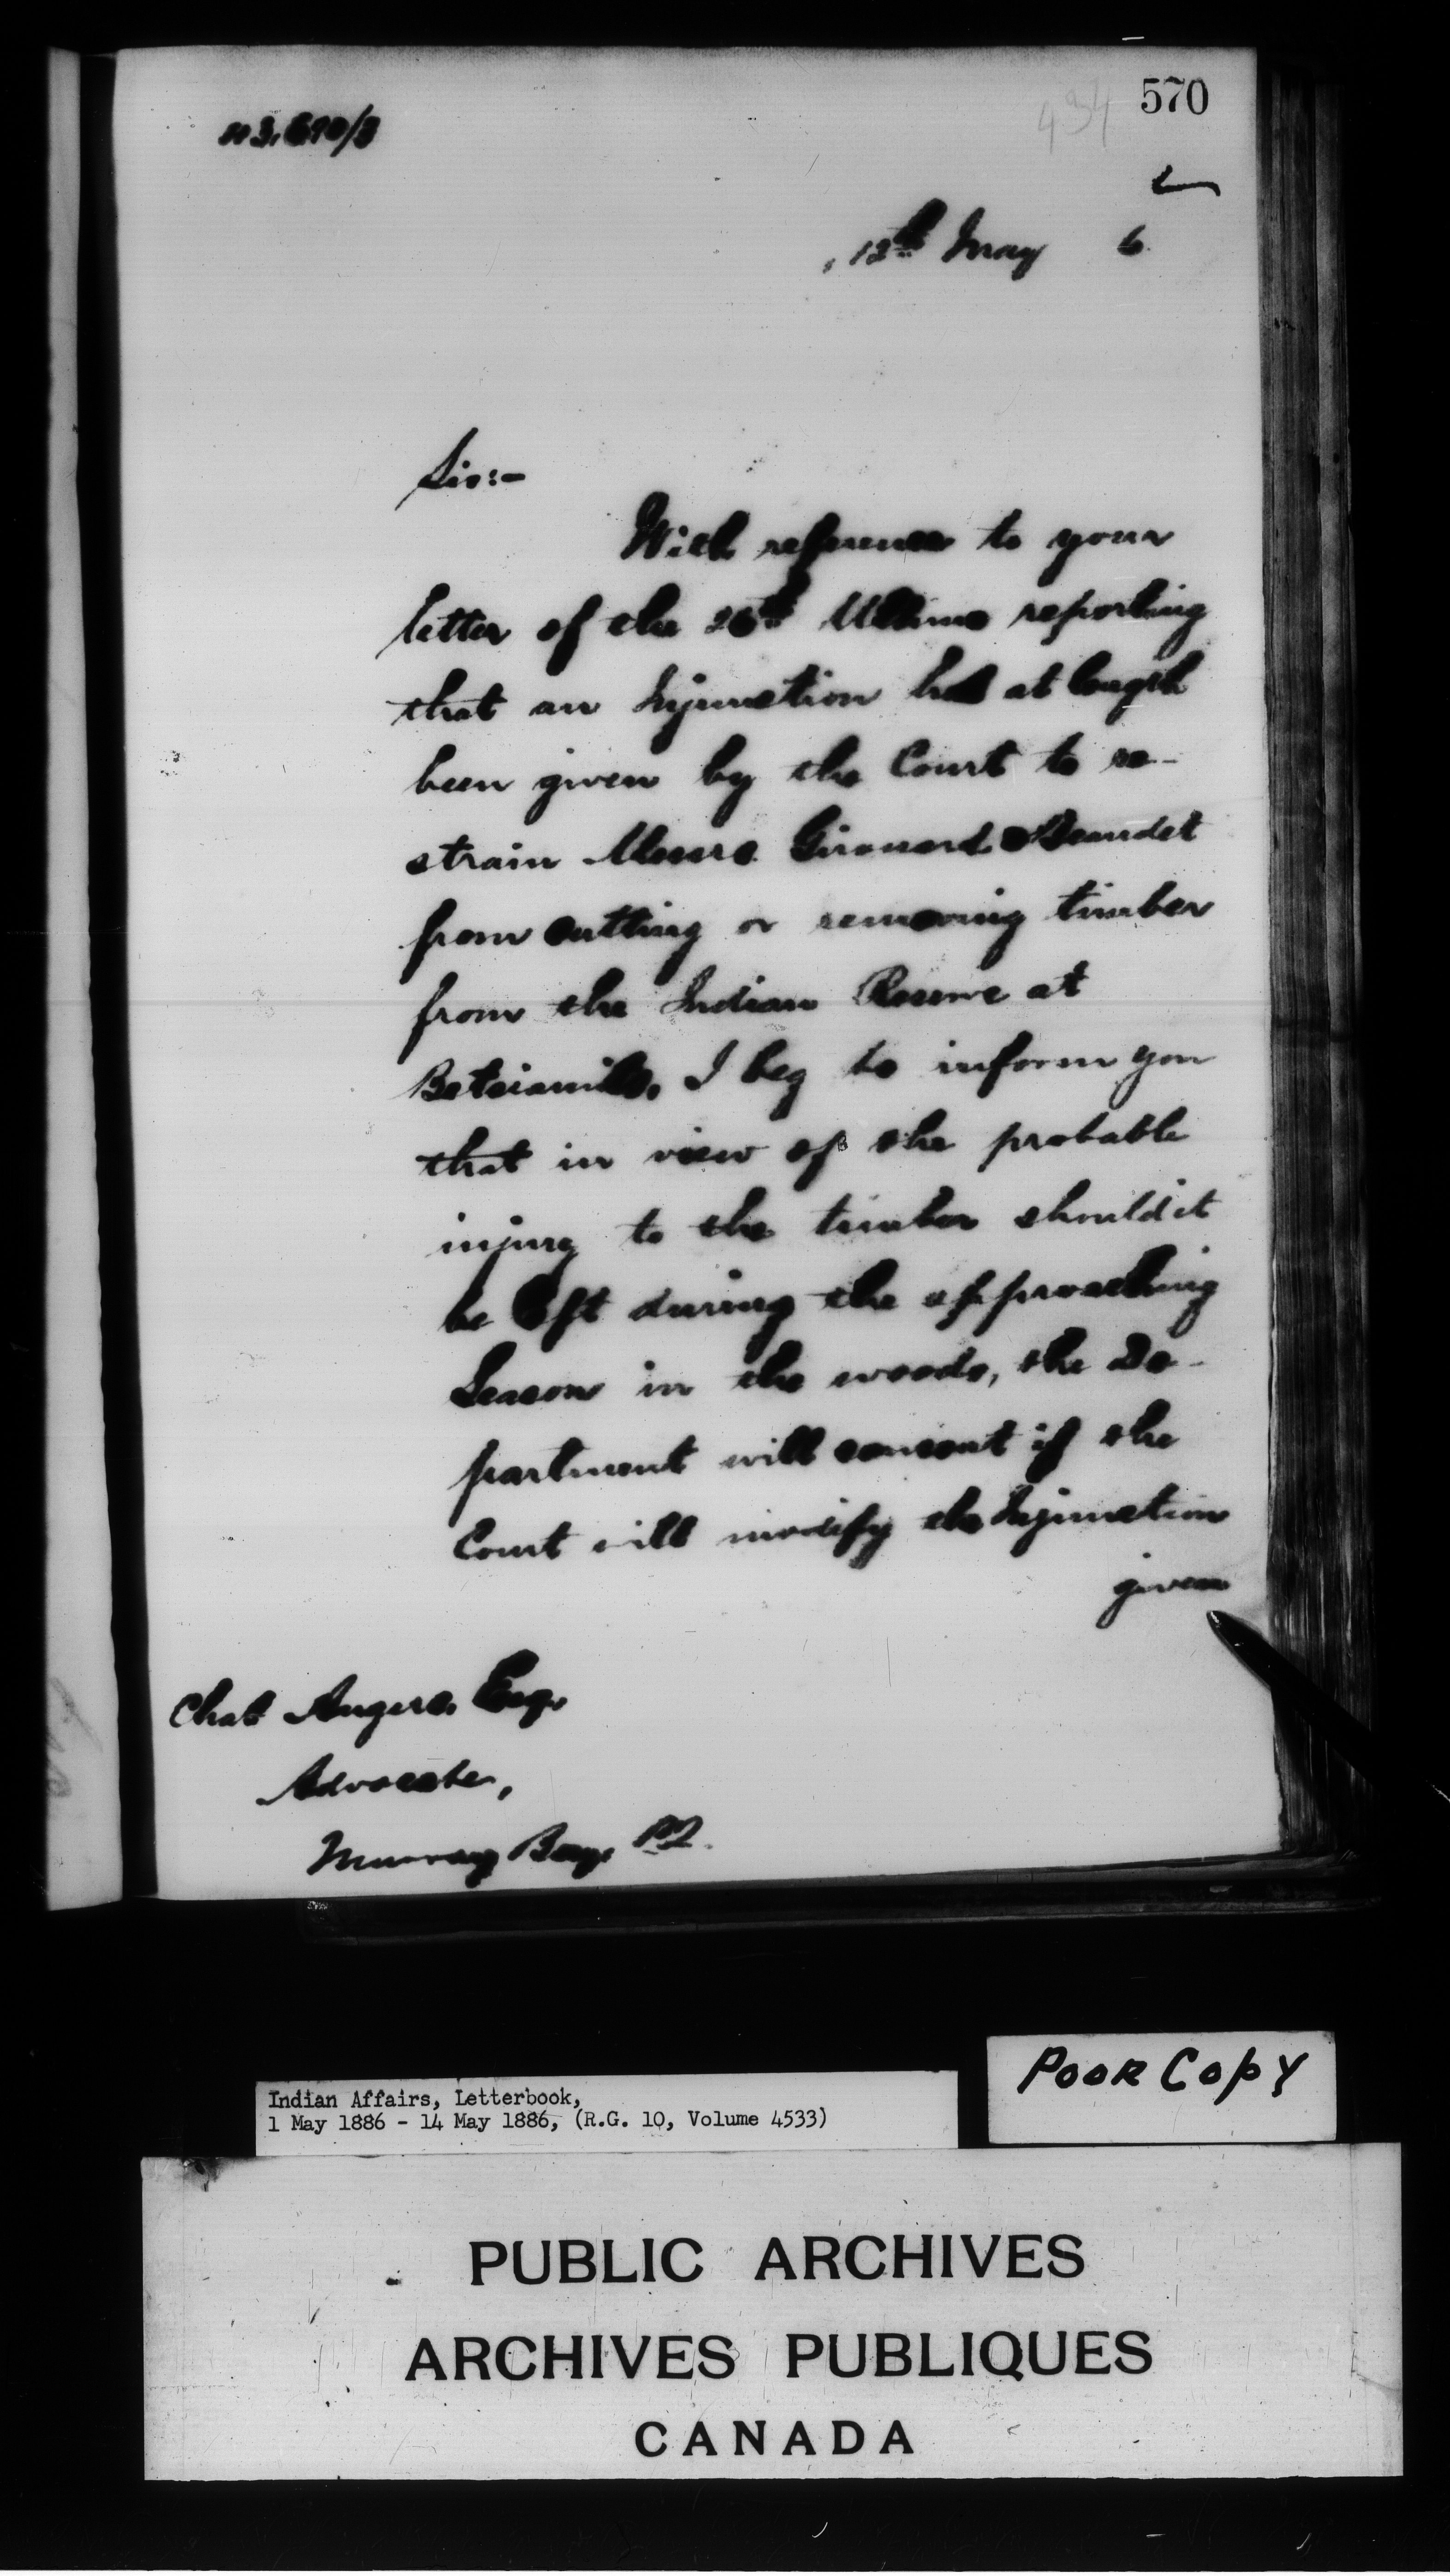 570
434
12th May 6
Sir:-
With reference to your
letter of the 26th Ultimo reporting
that an Injunction had at length
been given by the Court to re-
strain Messrs. Girouard & Beaudet
from cutting or removing timber
from the Indian Reserve at
Betsiamits, I beg to inform you
that in view of the probable
injury to the timber should it
be left during the approaching
Season in the woods, the De-
partment will consent if the
Court will modify the Injunction
given
Chas Angers, Esq,
Advocate,
Murray Bay, P.Q.
Indian Affairs, Letterbook,
1 May 1886 - 14 May 1886, (R.G. 10, Volume 4533)
POOR COPY
PUBLIC ARCHIVES
ARCHIVES PUBLIQUES
CANADA